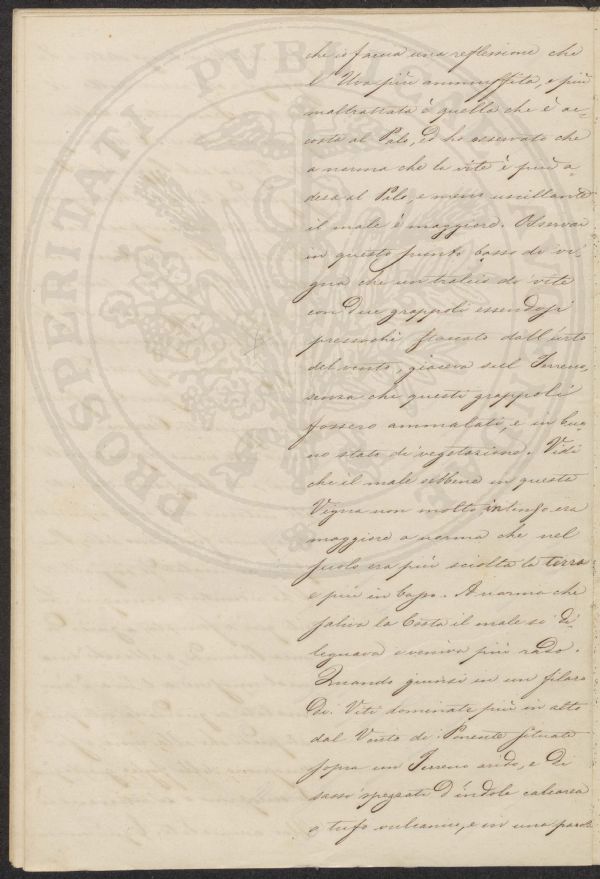 che io faceva una reflessione che
l'Uva più ammuffita, e più
maltrattata è quella che è ac-
costa al Palo, ed ho osservato che
a norma che la vite è più a-
desa al Palo, e meno uscillante
il male è maggiore. Observai
in questo punto basso di vi-
gna che un tralcio di vite
con due grappoli essendosi
pressochè staccato dall'urto
del vento, giaceva sul Terreno,
senza che questi grappoli
fossero ammalati, e in buo-
no stato di vegetazione. Vidi
che il male ebbene in questa
Vigna non molto intenso era
maggiore a norma che nel
suolo era più sciolta la terra
e più in basso. A norma che
saliva la Costa il male si di-
leguava e veniva più rado.
Quando giunsi in un filaro
di Viti dominate più in alto
dal Vento di Ponente situate
sopra un Terreno arido, e di
sassi spezzati d'indole calcarea
o tufo vulcanico, e in una parola
PROSPERITATI PVBLI